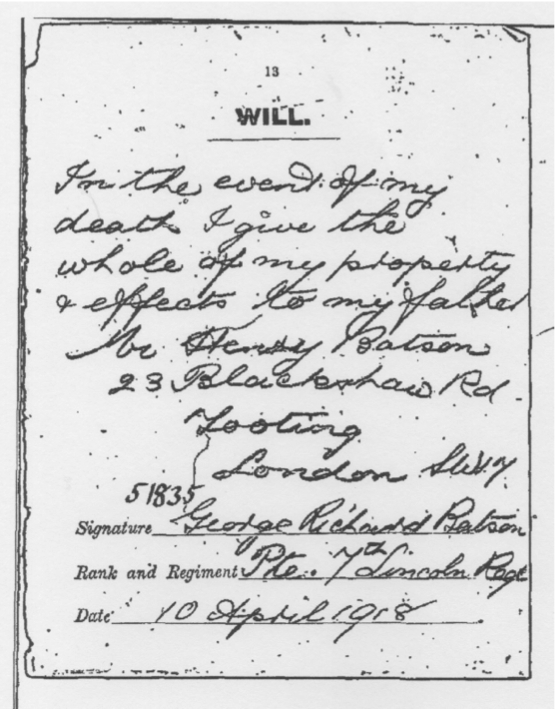 13
WILL.
In the event of my
death I give the
whole of my property
& effects to my father
Mr Henry Batson
23 Blackshaw Rd
Tooting
London SW17
51835
Signature George Richard Batson
Rank and Regiment Pte. 7th Lincoln Regt
Date 10 April 1918